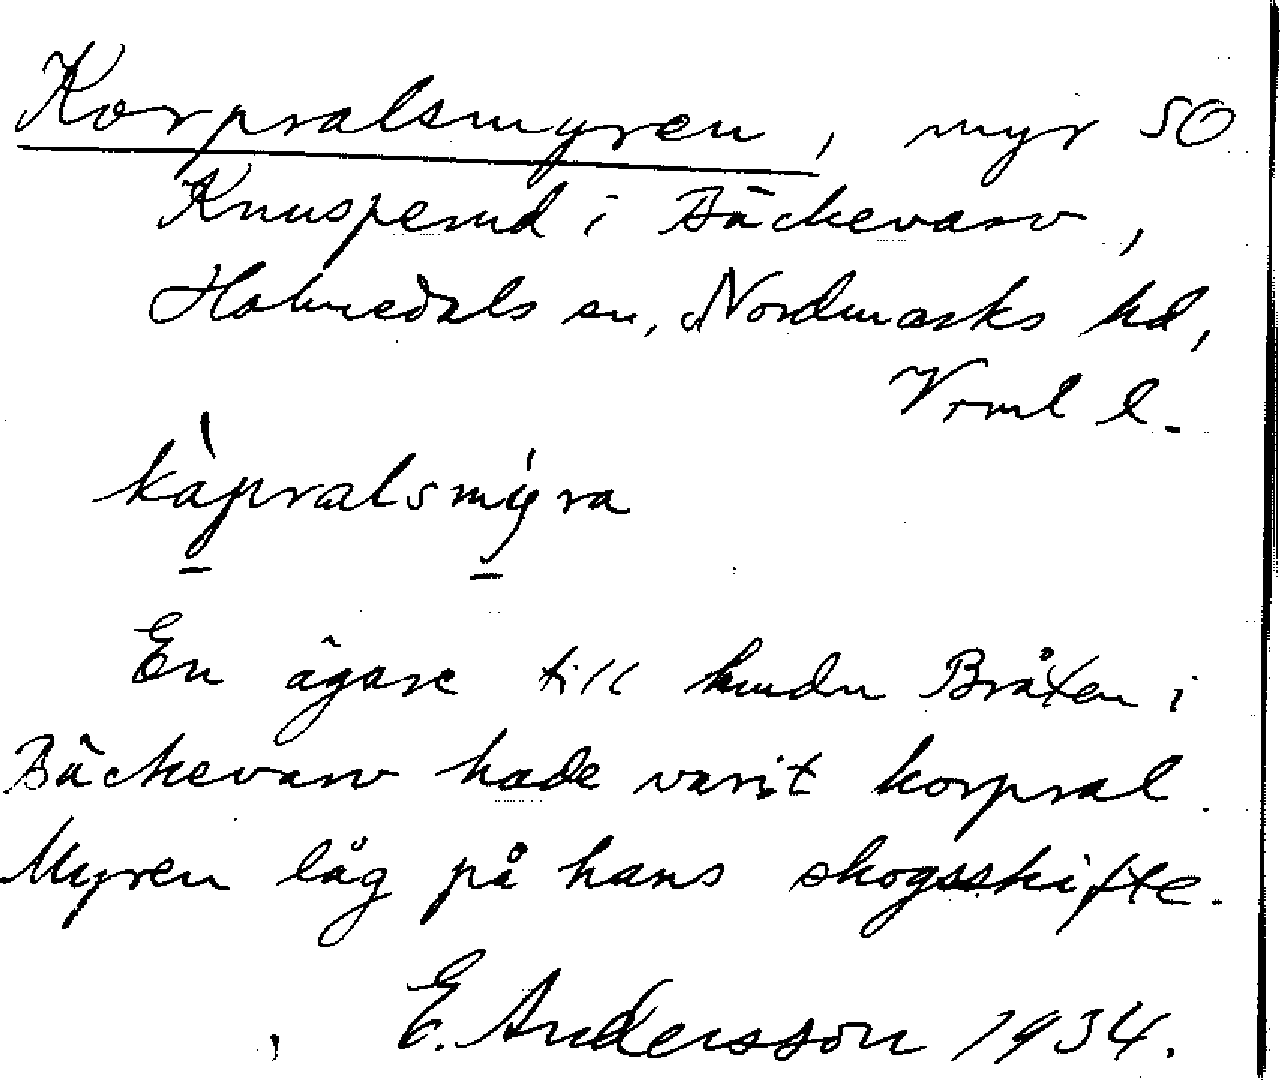 Korpralsmyren, myr SO
Knuserud i Bäckevarv,
Holmedals sn, Nordmarks hd,
Vrml l.
kåpralsmýra
En ägare till hmdn Bråten i
Bäckevarv hade varit korpral.
Myren låg på hans skogsskifte.
E. Andersson 1934.